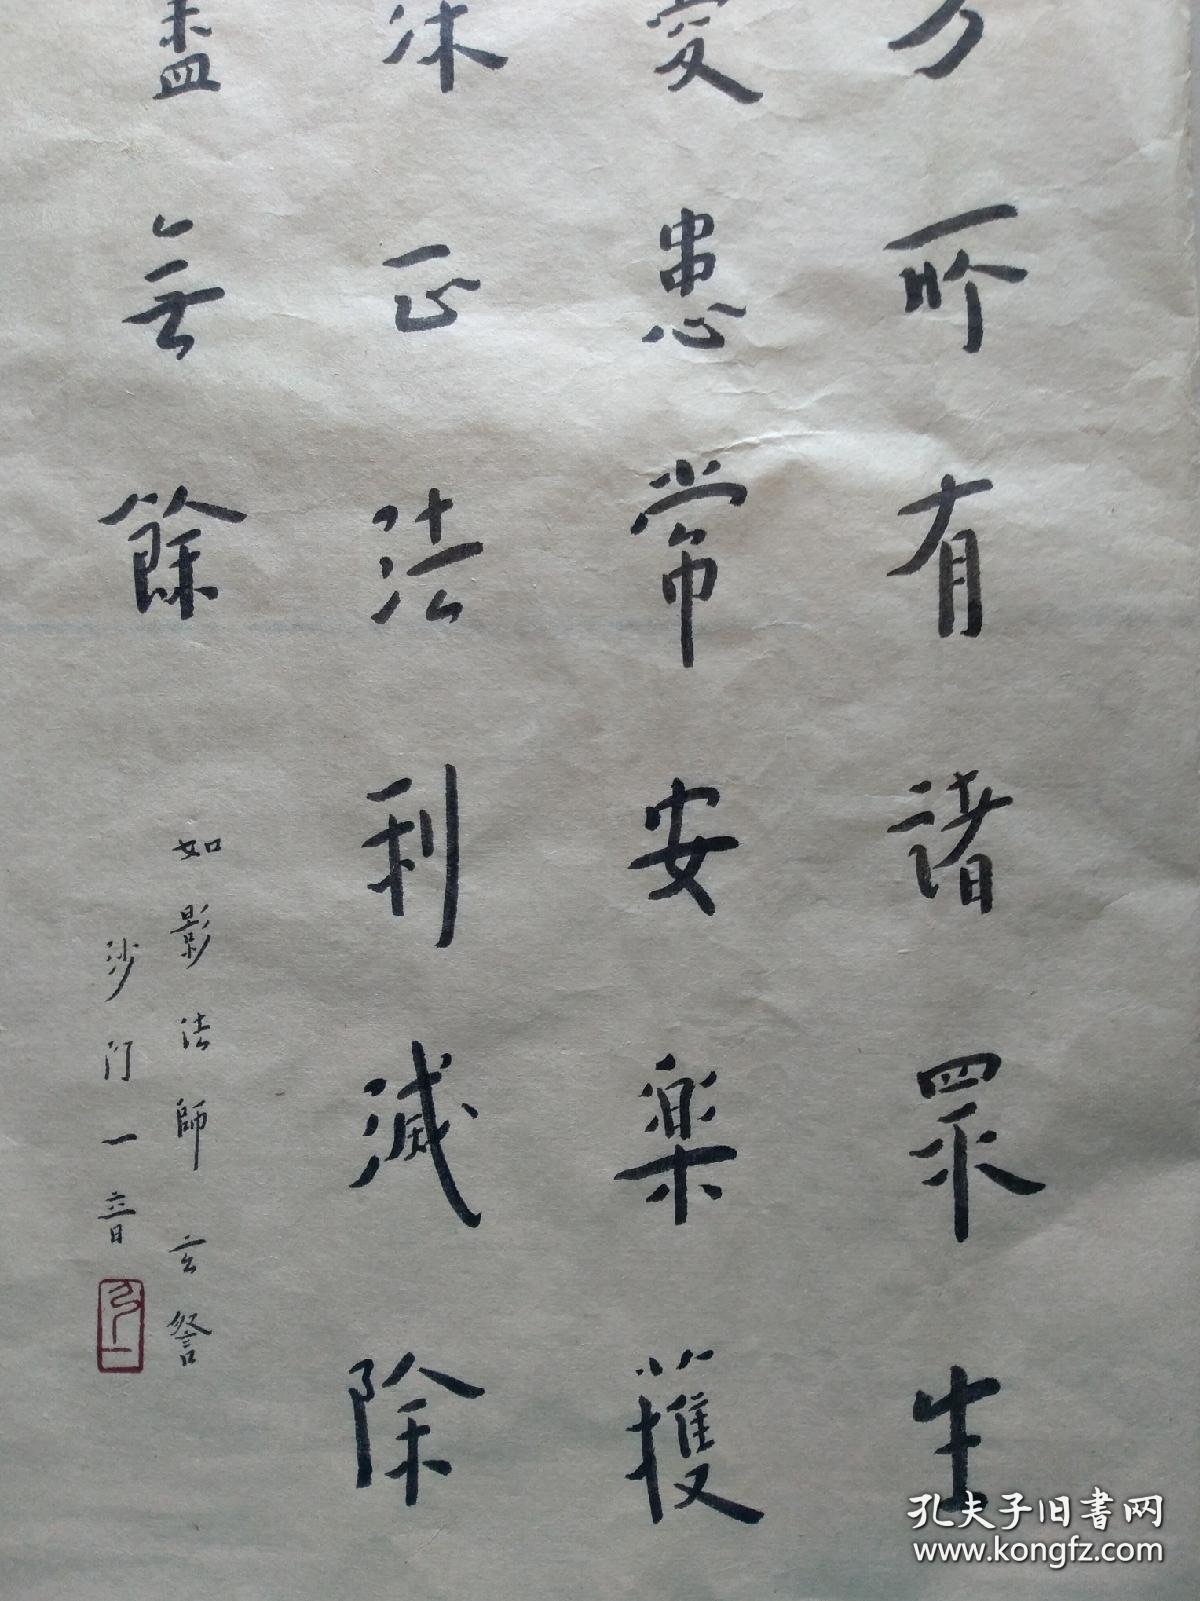 方所有諸眾生
憂患常安樂獲
深正法利滅除
盡無餘
如影法師玄詧
沙門一音
弘一
孔夫子旧書网
www.kongfz.com